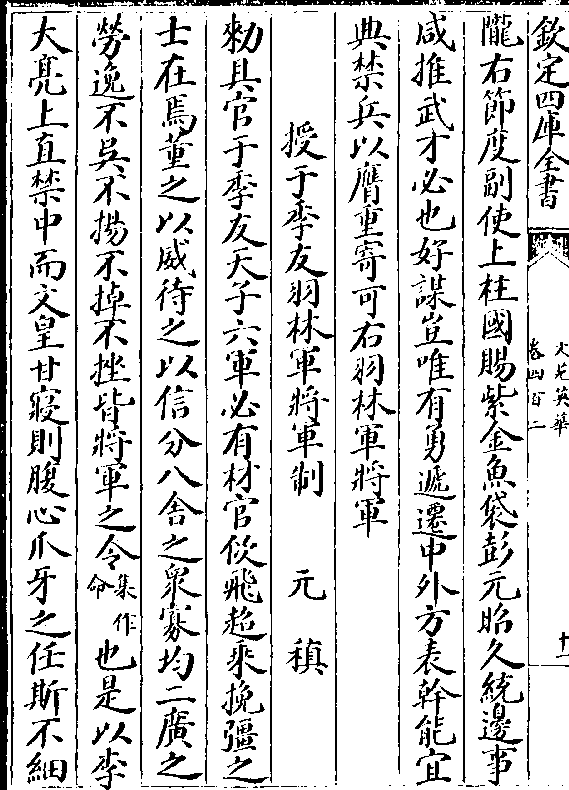 欽定四庫全書
文苑英華
卷四百二
十二
隴右節度副使上柱國賜紫金魚袋彭元昭久統邊事
咸推武才必也好謀豈唯有勇遞遷中外方表幹能宜
典禁兵以膺重寄可右羽林軍將軍
授于季友羽林軍將軍制 元稹
勅具官于季友天子六軍必有材官佽飛超乘挽彊之
士在焉董之以威待之以信分八舍之衆寡均二廣之
勞逸不吳不揚不掉不挫皆將軍之令集作命也是以李
大亮上直禁中而文皇甘寢則腹心爪牙之任斯不細